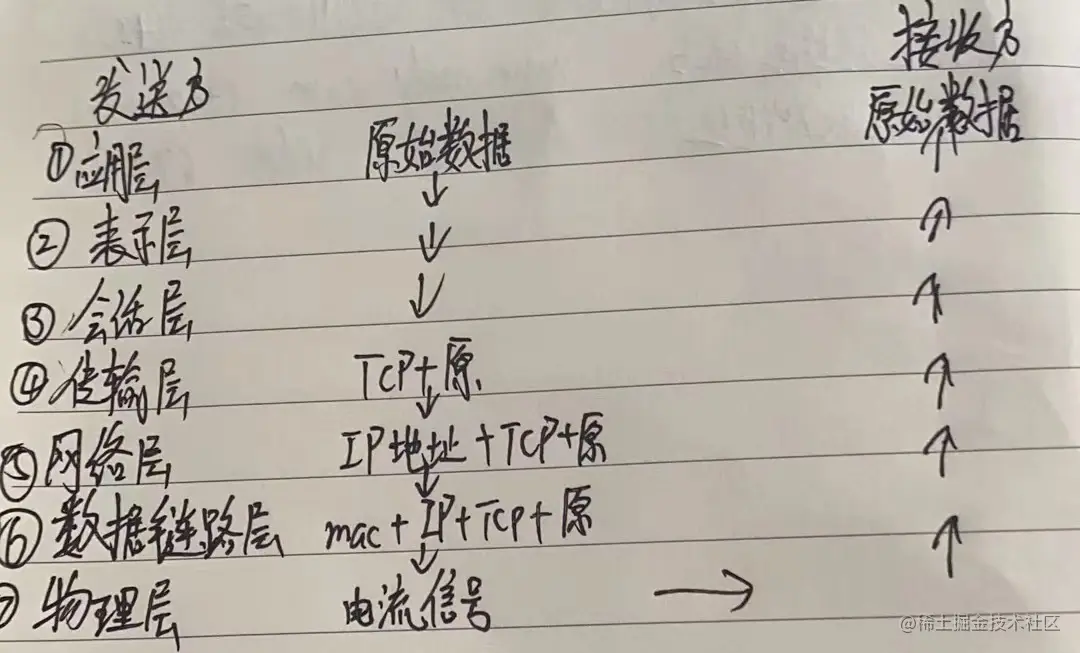 发送方 接收方
①应用层 原始数据 原始数据
②表示层
③会话层
④传输层 TCP+原
⑤网络层 IP地址+TCP+原
⑥数据链路层 mac+IP+TCP+原
⑦物理层 电流信号
@稀土掘金技术社区